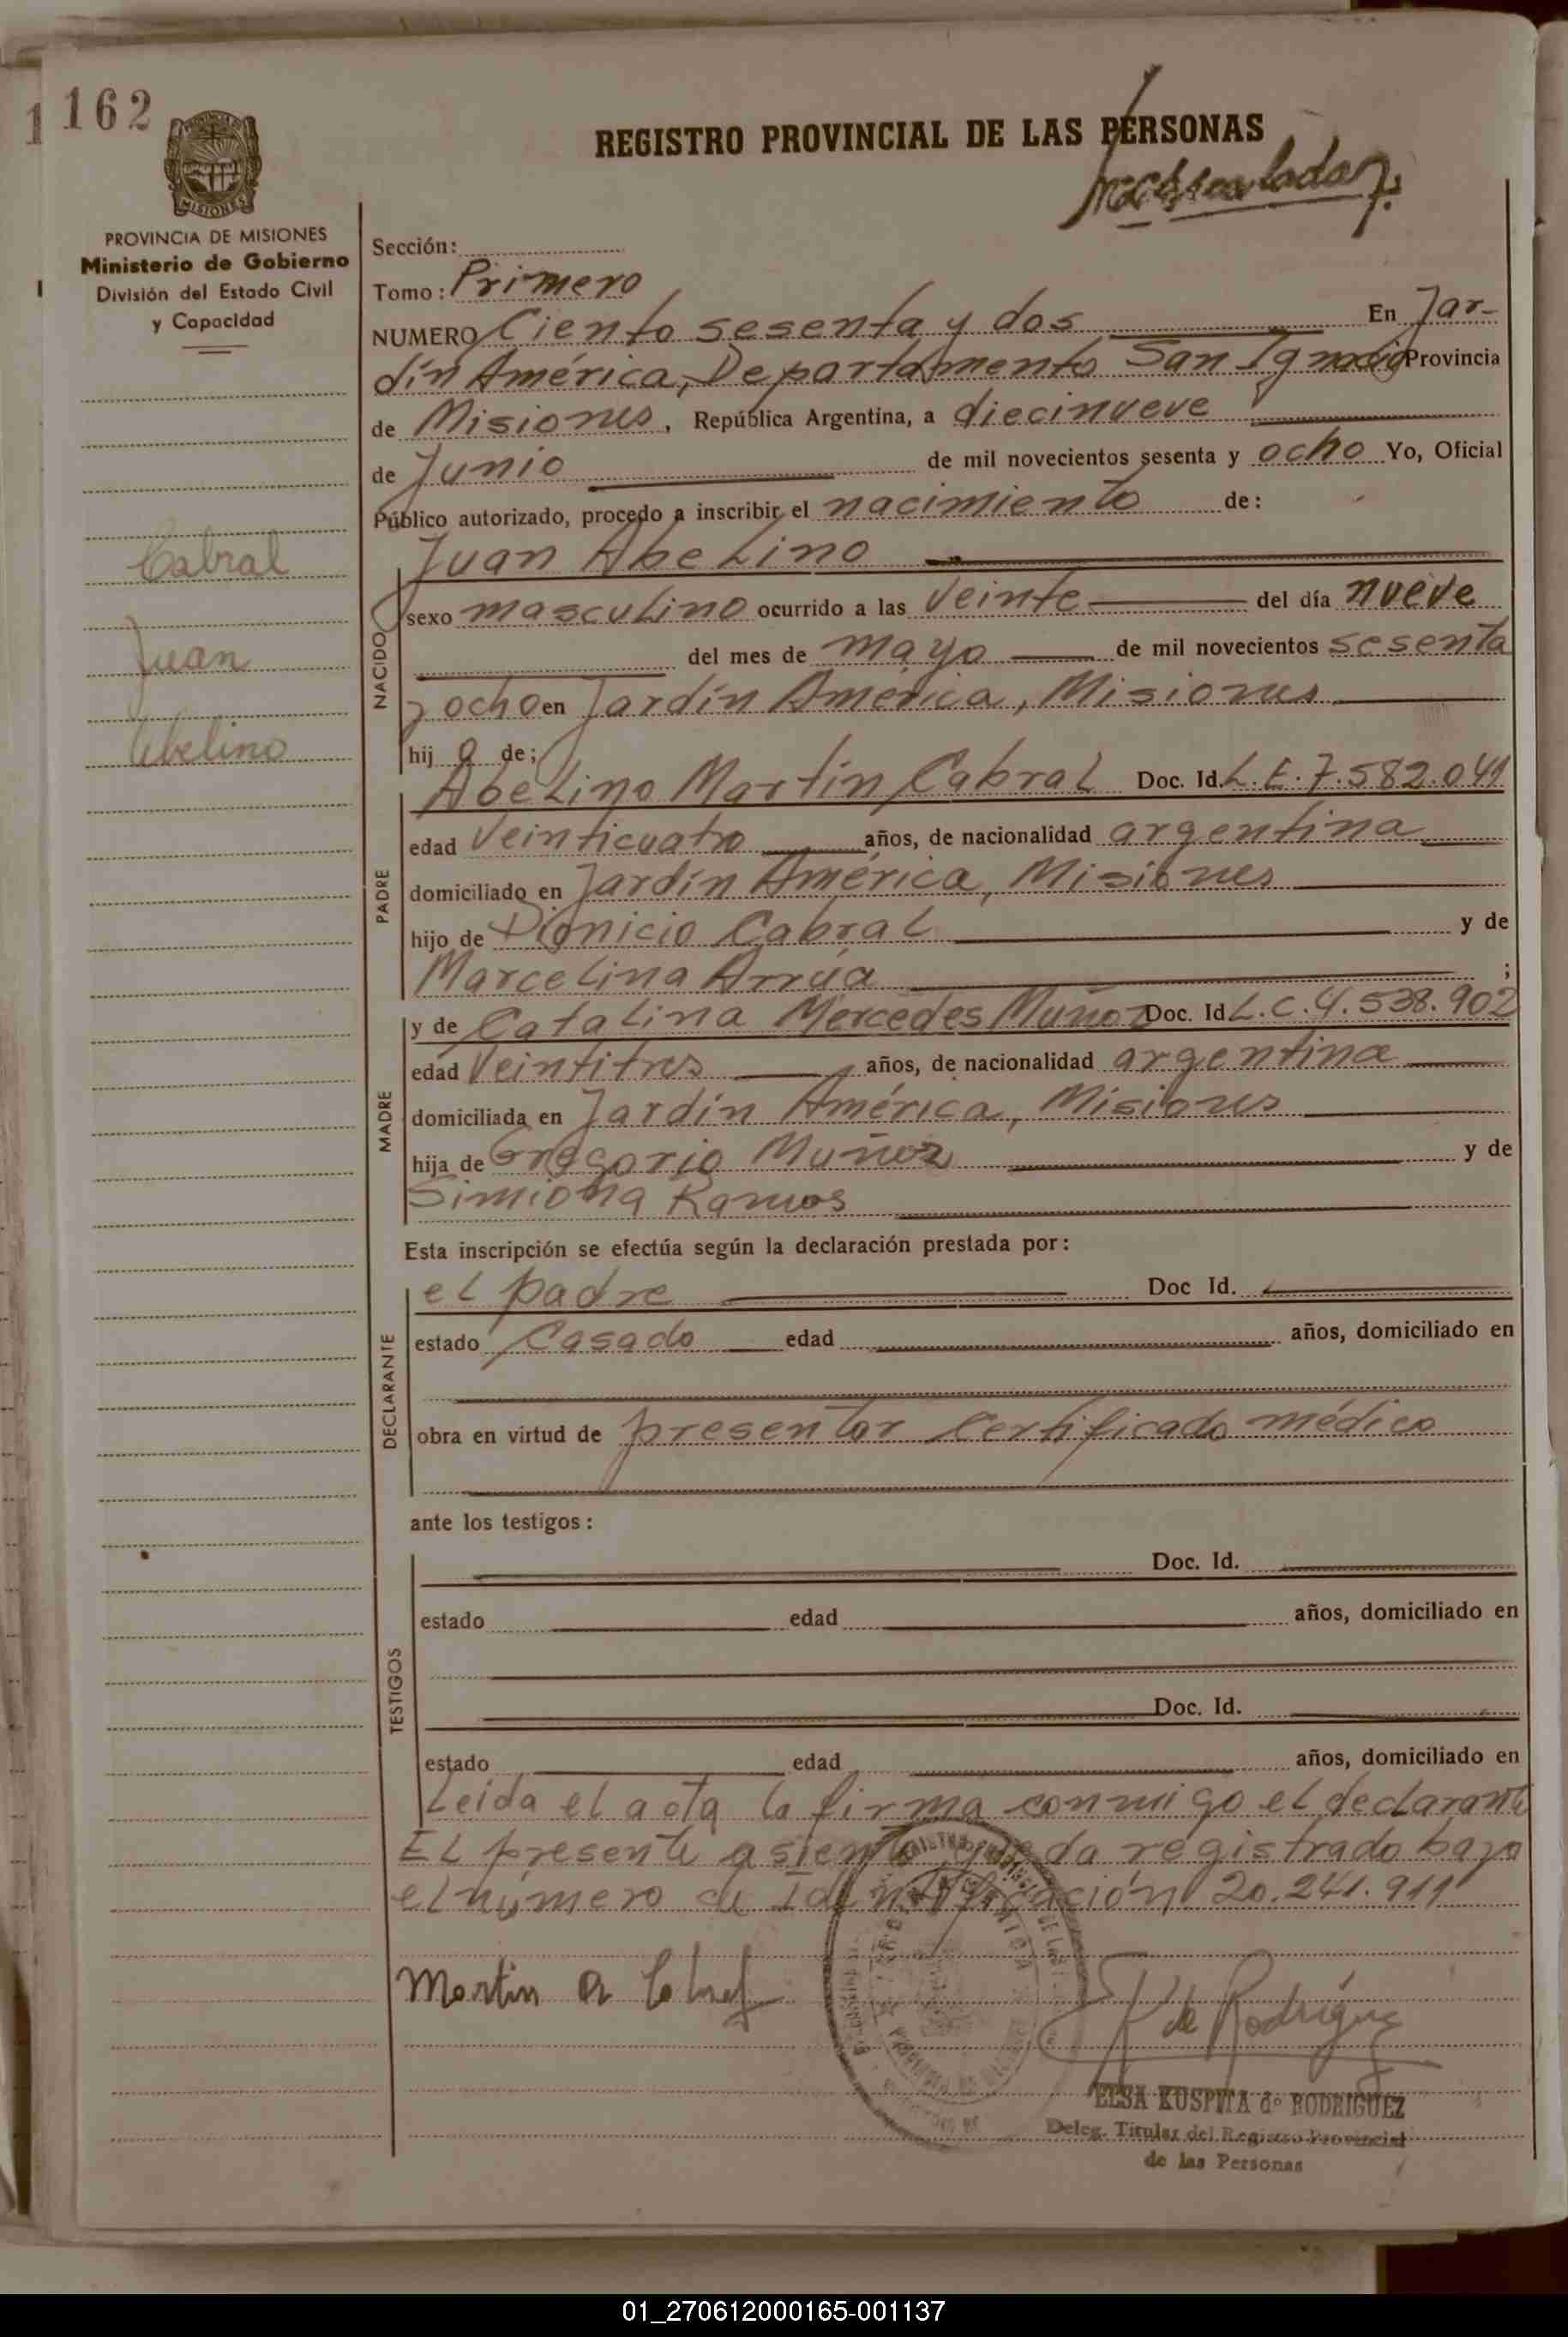 162
REGISTRO PROVINCIAL DE LAS PERSONAS
PROVINCIA DE MISIONES
Ministerio de Gobierno
División del Estado Civil
y Capacidad
Cabral
Juan
Abelino
Sección:
Tomo: Primero
NUMERO Ciento sesenta y dos En Jar-
dín América, Departamento San Ignacio Provincia
de Misiones, República Argentina, a diecinueve
de Junio de mil novecientos sesenta y ocho Yo, Oficial
Público autorizado, procedo a inscribir el nacimiento de:
Juan Abelino
NACIDO
sexo masculino ocurrido a las Veinte del día nueve
del mes de mayo de mil novecientos sesenta
y ocho en Jardín América, Misiones
hij o de;
PADRE
Abelino Martín Cabral Doc. Id. L.E. 7.582.041
edad Veinticuatro años, de nacionalidad argentina
domiciliado en Jardín América, Misiones
hijo de Dionicio Cabral y de
Marcelina Arrúa ;
MADRE
y de Catalina Mercedes Muñoz Doc. Id. L.C. 4.538.902
edad Veintitres años, de nacionalidad argentina
domiciliada en Jardín América, Misiones
hija de Gregorio Muñoz y de
Simiona Ramos
Esta inscripción se efectúa según la declaración prestada por:
DECLARANTE
el padre Doc Id.
estado Casado edad años, domiciliado en
obra en virtud de presentar Certificado médico
ante los testigos:
TESTIGOS
Doc. Id.
estado edad años, domiciliado en
Doc. Id.
estado edad años, domiciliado en
Leida el acta la firma conmigo el declarante
El presente asiento queda registrado bajo
el número de Identificación 20.241.911
Martin A Cabral
de Rodríguez
ELSA KUSPITA de RODRIGUEZ
Deleg. Titular del Registro Provincial
de las Personas
01_270612000165-001137